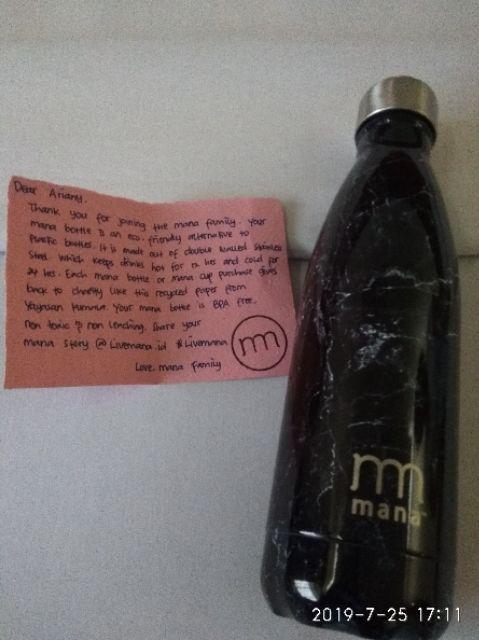 Dear Ariany,
Thank you for joining the mana family. Your
mana bottle is an eco-friendly alternative to
plastic bottles. It is made out of double walled stainless
steel. Which keeps drinks hot for 12 hrs and cold for
24 hrs. Each mana bottle or mana cup purchase gives
back to charity like this recycled paper from
Yayasan. Your mana bottle is BPA free.
non toxic & non leaching. Share your
mana story @Livemana.id #Livemana
Love, mana Family
m
m
mana
2019-7-25 17:11